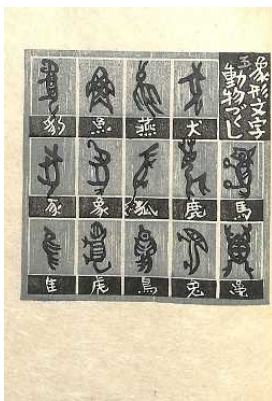 象形文字
動物つくし
犬 燕 魚 豹
馬 鹿 狐 象 豕
兎 鳥 虎 隹